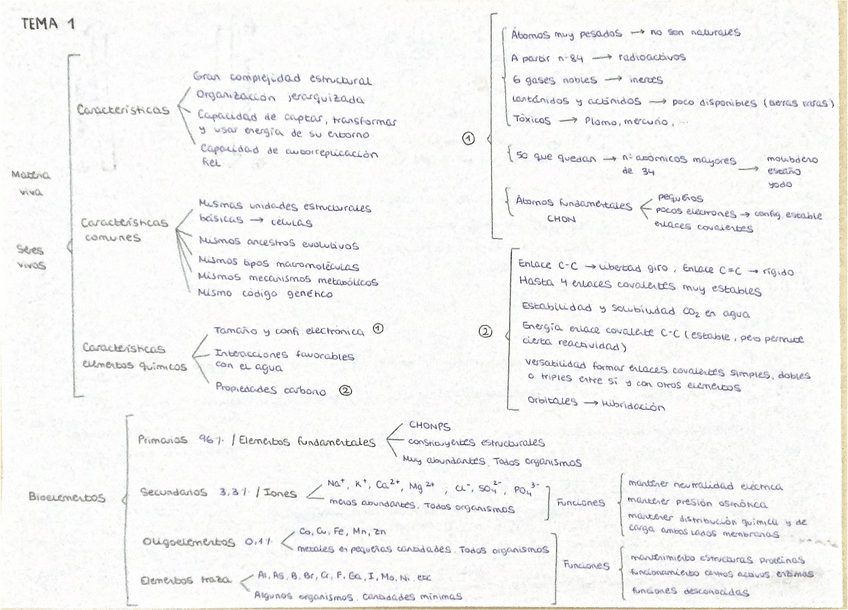 TEMA 1
Materia
viva
Seres
vivos
Características
Gran complejidad estructural
Organización jerarquizada
Capacidad de captar, transformar
y usar energía de su entorno
Capacidad de autorreplicación
fiel
Características
comunes
Mismas unidades estructurales
básicas → células
Mismos ancestros evolutivos
Mismos tipos macromoléculas
Mismos mecanismos metabólicos
Mismo código genético
Características
elementos químicos
Tamaño y confi electrónica ①
Interacciones favorables
con el agua
Propiedades carbono ②
①
Átomos muy pesados → no son naturales
A partir nº 84 → radioactivos
6 gases nobles → inertes
Lantánidos y actínidos → poco disponibles (tierras raras)
Tóxicos → Plomo, mercurio, ...
50 que quedan → nº atómicos mayores
de 34 → molibdeno
estaño
yodo
Átomos fundamentales
CHON
pequeños
pocos electrones → config estable
enlaces covalentes
②
Enlace C-C → libertad giro, Enlace C=C → rígido
Hasta 4 enlaces covalentes muy estables
Estabilidad y solubilidad CO₂ en agua
Energía enlace covalente C-C (estable, pero permite
cierta reactividad)
Versatilidad formar enlaces covalentes simples, dobles
o triples entre sí y con otros elementos
Orbitales → Hibridación
Bioelementos
Primarios 96% / Elementos fundamentales
CHONPS
constituyentes estructurales
Muy abundantes. Todos organismos
Secundarios 3,3% / Iones
Na⁺, K⁺, Ca²⁺, Mg²⁺, Cl⁻, SO₄²⁻, PO₄³⁻
menos abundantes. Todos organismos
Funciones
mantener neutralidad eléctrica
mantener presión osmótica
mantener distribución química y de
carga ambos lados membranas
Oligoelementos 0,1%
Co, Cu, Fe, Mn, Zn
metales en pequeñas cantidades. Todos organismos
Elementos traza
Al, As, B, Br, Cr, F, Ga, I, Mo, Ni, etc
Algunos organismos. Cantidades mínimas
Funciones
mantenimiento estructuras proteínas
funcionamiento centros activos enzimas
funciones desconocidas